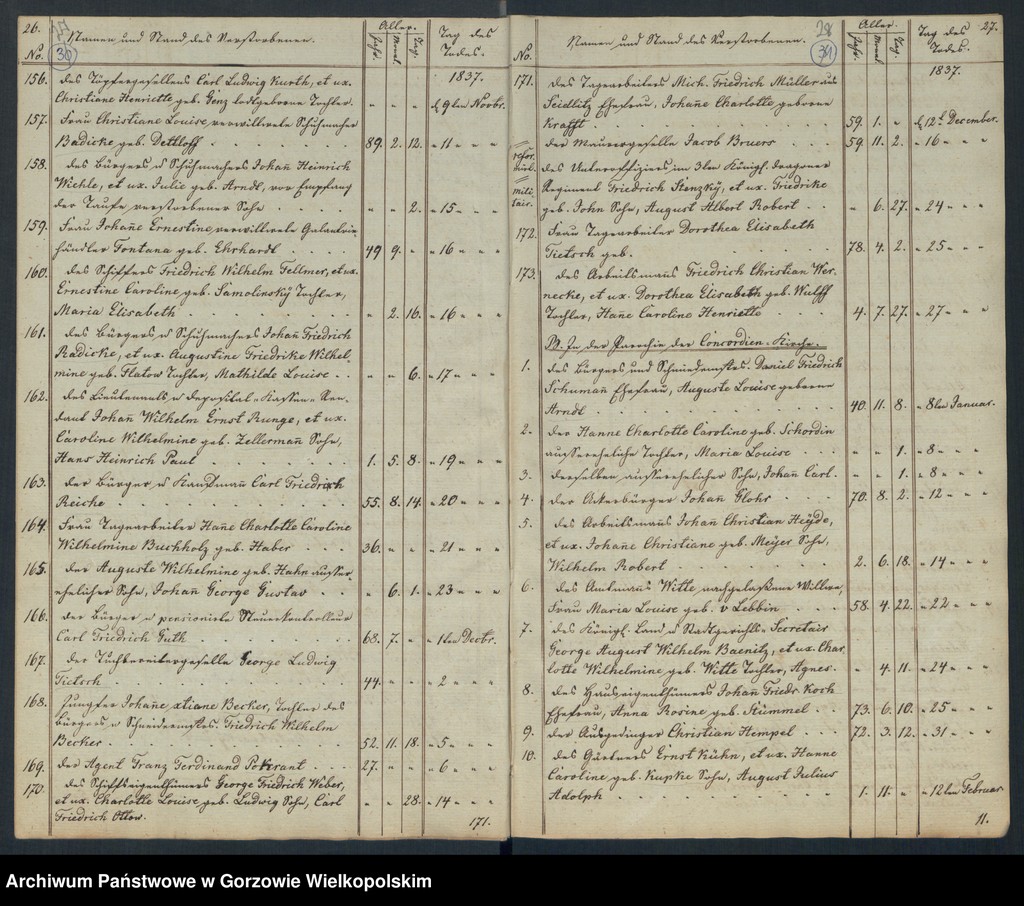 26.
(30)
No.
Namen und Stand des Verstorbenen.
Alter.
Jahr.
Monat.
Tag.
Tag des
Todes.
1837.
156. des Töpfergesellen Carl Ludwig Kurth, et ux.
Christiane Henriette geb. Genz todtgeborne Tochter. " " " d. 9ten Novbr.
157. Frau Christiane Louise, verwittwete Schuhmacher
Badicke geb. Dethloff 89. 2. 12. " 11 " "
158. des Bürgers u Schuhmachers Johañ Heinrich
Wichle, et ux. Julie geb. Arndt, vor Empfang
der Taufe verstorbener Sohn " " 2. " 15 " "
159. Frau Johañe Ernestine, verwittwete Galanterie-
händler Fontana geb. Ehrhardt 49 9. " " 16 " "
160. des Schiffers Friedrich Wilhelm Fellmer, et ux.
Ernestine Caroline geb. Samolinsky Tochter,
Maria Elisabeth " 2. 16. " 16 " "
161. des Bürgers u Schuhmachers Johañ Friedrich
Radicke, et ux. Augustine Friedrike Wilhel-
mine geb. Flatow Tochter, Mathilde Louise " " 6. " 17 " "
162. des Lieutenants u Deposital-Kassen-Ren-
dant Johañ Wilhelm Ernst Runge, et ux.
Caroline Wilhelmine geb. Zellermañ Sohn,
Hans Heinrich Paul 1. 5. 8. " 19 " "
163. der Bürger u Kaufmañ Carl Friedrich
Reiche 55. 8. 14. " 20 " "
164. Frau Tagearbeiter Hañe Charlotte Caroline
Wilhelmine Buchholz geb. Haber 36. " " " 21 " "
165. der Auguste Wilhelmine geb. Hahn außer-
ehelicher Sohn, Johañ George Gustav " 6. 1. " 23 " "
166. der Bürger u pensionirte Steuerkontrolleur
Carl Friedrich Guth 68. 7. " " 1ten Decbr.
167. der Tuchbereitergeselle George Ludwig
Tietsch 44. " " " 2 " "
168. Jungfer Johañe xtiane Becker, Tochter des
Bürgers u Schneidermstrs. Friedrich Wilhelm
Becker 52. 11. 18. " 5 " "
169. der Agent Franz Ferdinand Pokrant 27. " " " 6 " "
170. des Schiffseigenthümers George Friedrich Weber,
et ux. Charlotte Louise geb. Ludwig Sohn, Carl " " 28. " 14 " "
Friedrich Ottow.
171.
27.
28
(31)
No.
Namen und Stand des Verstorbenen.
Alter.
Jahr.
Monat.
Tag.
Tag des
Todes.
1837.
171. des Tagearbeiters Mich. Friedrich Müller aus
Seidlitz Ehefrau, Johañe Charlotte geborne
Krafft 59. 1. " d. 12t. December.
der Maurergeselle Jacob Bruers 59. 11. 2. " 16 " "
des Unteroffiziers im 3ten Königl. Dragoner
mili-
tair.
Regiment Friedrich Stenzky, et ux. Friedrike
geb. John Sohn, August Albert Robert " 6. 27. " 24 " "
172. Frau Tagearbeiter Dorothea Elisabeth
Tietsch geb. 78. 4. 2. " 25 " "
173. des Arbeitsmans Friedrich Christian Wer-
necke, et ux. Dorothea Elisabeth geb. Wulff
Tochter, Hañe Caroline Henriette 4. 7. 27. " 27 " "
B. In der Parochie der Concordien-Kirche.
1. des Bürgers und Schmiedemstrs. Daniel Friedrich
Schumañ Ehefrau, Auguste Louise geborne
Arndt 40. 11. 8. " 8ten Januar.
2. der Hanne Charlotte Caroline geb. Schordin
außereheliche Tochter, Maria Louise " " 1. " 8 " "
3. derselben außerehelicher Sohn, Johañ Carl. " " 1. " 8 " "
4. der Ackerbürger Johañ Glohr 70. 8. 2. " 12 " "
5. des Arbeitsmans Johañ Christian Heyde,
et ux. Johañe Christiane geb. Meyer Sohn,
Wilhelm Robert 2. 6. 18. " 14 " "
6. des Amtmans Witte nachgelaßene Wittwe,
Frau Maria Louise geb. v Lebbin 58. 4. 22. " 22 " "
7. des Königl. Land u Stadtgerichts-Secretair
George August Wilhelm Baenitz, et ux. Char-
lotte Wilhelmine geb. Witte Tochter, Agnes. " 4. 11. " 24 " "
8. des Hauseigenthümers Johañ Friedr. Koch
Ehefrau, Anna Rosine geb. Stümmel 73. 6. 10. " 25 " "
9. der Ausgedinger Christian Hempel 72. 3. 12. " 31 " "
10. des Gärtners Ernst Kühn, et ux. Hanne
Caroline geb. Kupke Sohn, August Julius
Adolph 1. 11. " " 12ten Februar.
11.
Archiwum Państwowe w Gorzowie Wielkopolskim